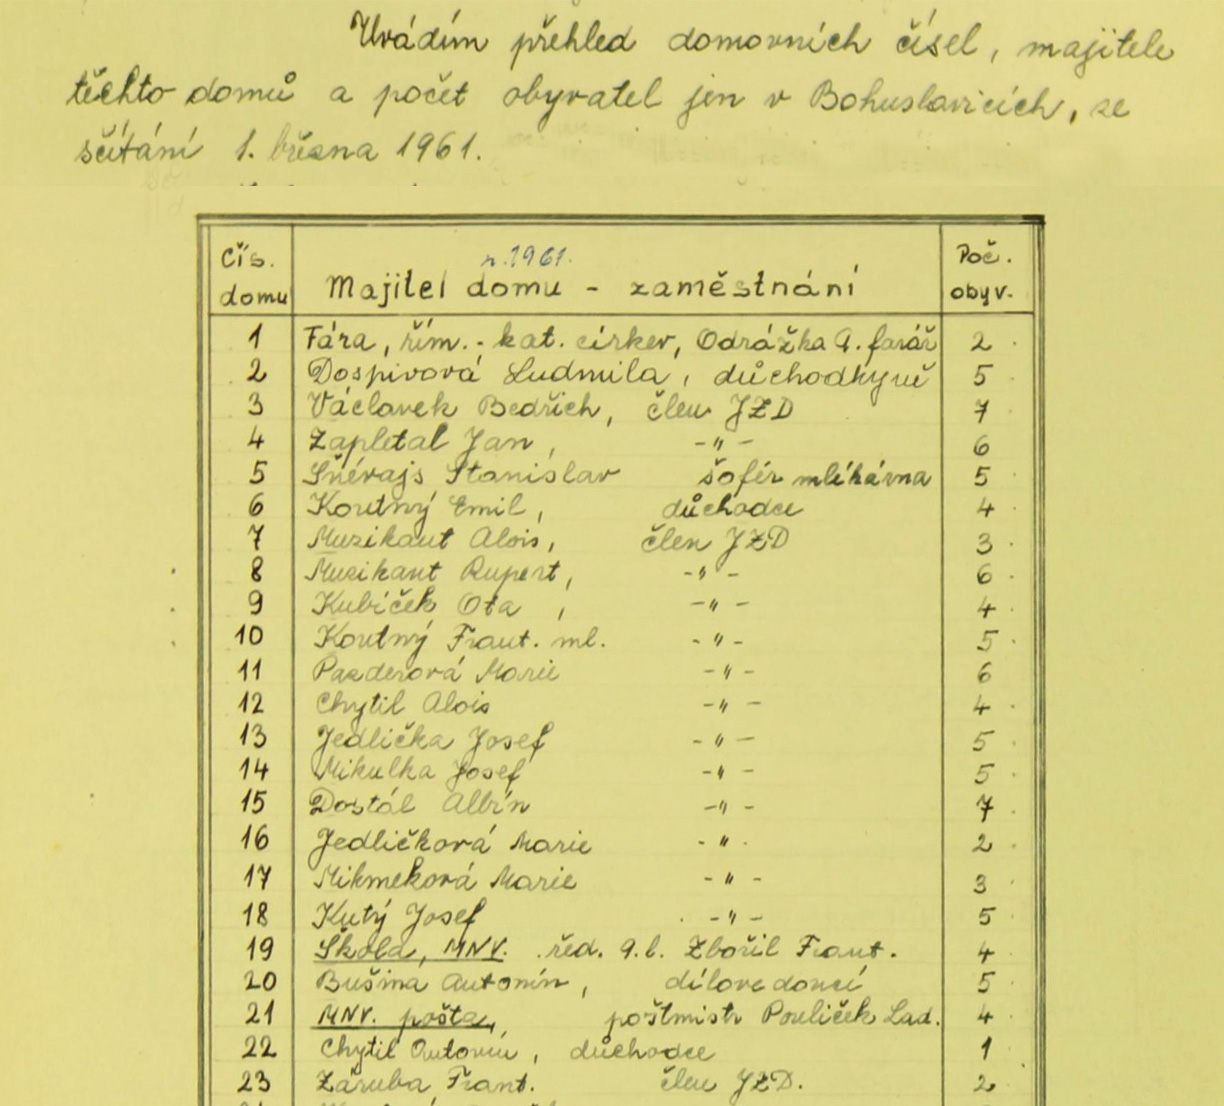 Uvádím přehled domovních čísel, majitele
těchto domů a počet obyvatel jen v Bohuslavicích, ze
sčítání 1. března 1961.
Čís. domu r. 1961. Majitel domu - zaměstnání Poč. obyv.
1 Fára, řím.-kat. církev, Odrážka A. farář 2
2 Dospivová Ludmila, důchodkyně 5
3 Václavek Bedřich, člen JZD 7
4 Zapletal Jan, -"- 6
5 Stanislav šofér mlékárna 5
6 Koutný Emil, důchodce 4
7 Muzikant Alois, člen JZD 3
8 Muzikant Rupert, -"- 6
9 Kubíček Ota, -"- 4
10 Koutný Frant. ml. -"- 5
11 Pazderová Marie -"- 6
12 Chytil Alois -"- 4
13 Jedlička Josef -"- 5
14 Mikulka Josef -"- 5
15 Dostál Albín -"- 7
16 Jedličková Marie -"- 2
17 Mikmeková Marie -"- 3
18 Kutý Josef -"- 5
19 Škola, MNV. řed. 9.l. Zbořil Frant. 4
20 Bušina Antonín, dílovedoucí 5
21 MNV. pošta, poštmistr Pouliček Lad. 4
22 Chytil Antonín, důchodce 1
23 Záruba Frant. člen JZD. 2